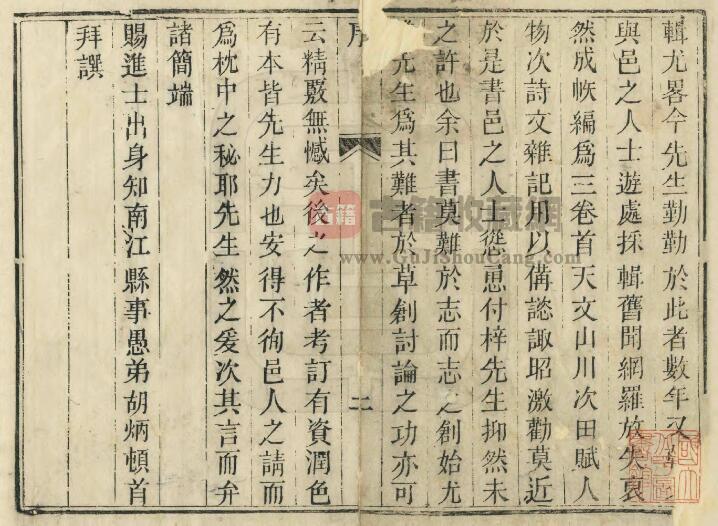 輯尤畧今先生勤勤於此者數年又
與邑之人士遊處採輯舊聞網羅放失裒
然成帙編為三卷首天文山川次田賦人
物次詩文雜記用以備諮諏昭激勸莫近
於是書邑之人士慫恿付梓先生抑然未
之許也余曰書莫難於志而志之創始尤
先生爲其難者於草創討論之功亦可
序
二
云精覈無憾矣後之作者考訂有資潤色
有本皆先生力也安得不徇邑人之請而
爲枕中之秘耶先生然之爰次其言而弁
諸簡端
賜進士出身知南江縣事愚弟胡炳頓首
拜譔
古籍
古籍收藏網
www.GuJiShouCang.com